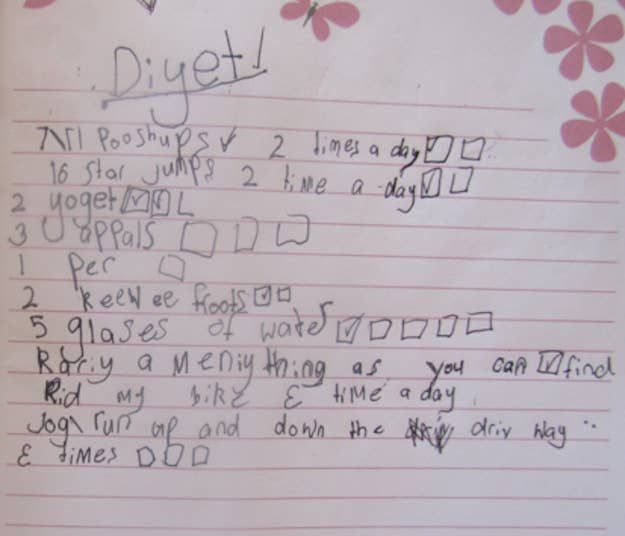 Diyet!
Pooshups 2 times a day
16 star jumps 2 time a day
2 yoget
3 appals
1 per
2 keewee froots
5 glases of water
Rariy a meniy thing as you can find
Rid my bike 3 time a day
Jog run up and down the driv way
3 times